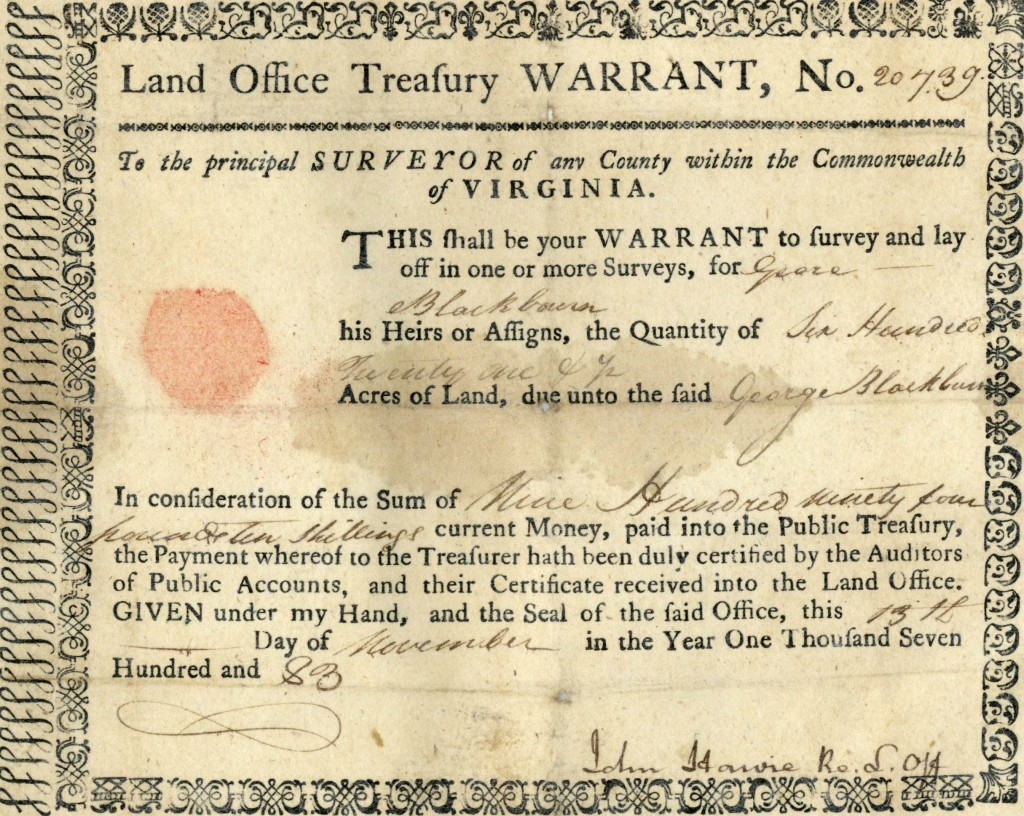 Land Office Treaſury WARRANT, No. 20739.
To the principal SURVEYOR of any County within the Commonwealth
of VIRGINIA.
THIS ſhall be your WARRANT to ſurvey and lay
off in one or more Surveys, for
Blackbourn
his Heirs or Aſſigns, the Quantity of Six Hundred
Twenty one & ½
Acres of Land, due unto the ſaid George Blackburn
In conſideration of the Sum of Nine Hundred ninety four
pounds ten Shillings current Money, paid into the Public Treaſury,
the Payment whereof to the Treaſurer hath been duly certified by the Auditors
of Public Accounts, and their Certificate received into the Land Office.
GIVEN under my Hand, and the Seal of the ſaid Office, this 13th
Day of November in the Year One Thouſand Seven
Hundred and 83
John Re. L. Off